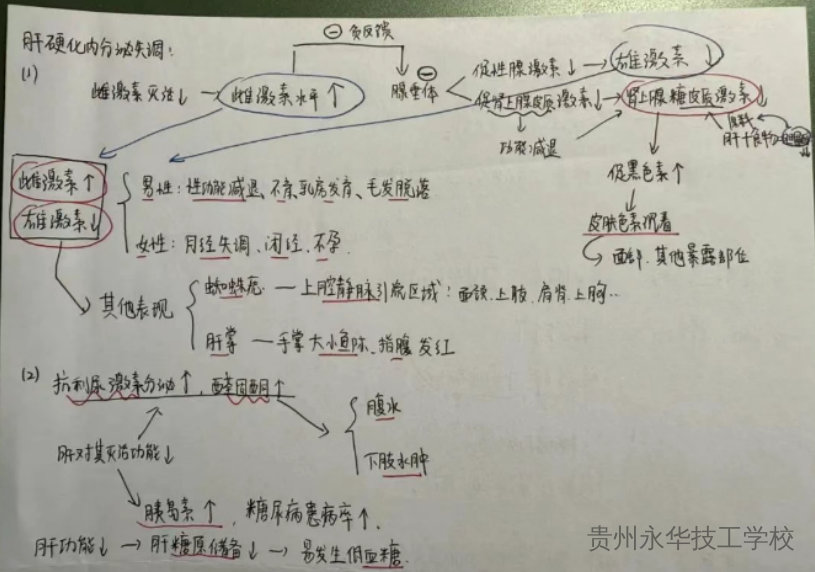 肝硬化内分泌失调:
(1)
⊖ 负反馈
雌激素灭活↓ → 雌激素水平↑
腺垂体 ⊖
促性腺激素↓ → 雄激素↓
促肾上腺皮质激素↓ → 肾上腺糖皮质激素↓
功能减退
原料
肝+食物→胆固醇↓
促黑色素↑
皮肤色素沉着
面部.其他暴露部位
雌激素↑
雄激素↓
男性:性功能减退、不育、乳房发育、毛发脱落
女性:月经失调、闭经、不孕.
其他表现
蜘蛛痣 — 上腔静脉引流区域:面颈.上肢.肩背.上胸…
肝掌 — 手掌大小鱼际、指腹发红
(2) 抗利尿激素分泌↑,醛固酮↑
腹水
下肢水肿
肝对其灭活功能↓
胰岛素↑,糖尿病患病率↑.
肝功能↓ → 肝糖原储备↓ → 易发生低血糖.
贵州永华技工学校